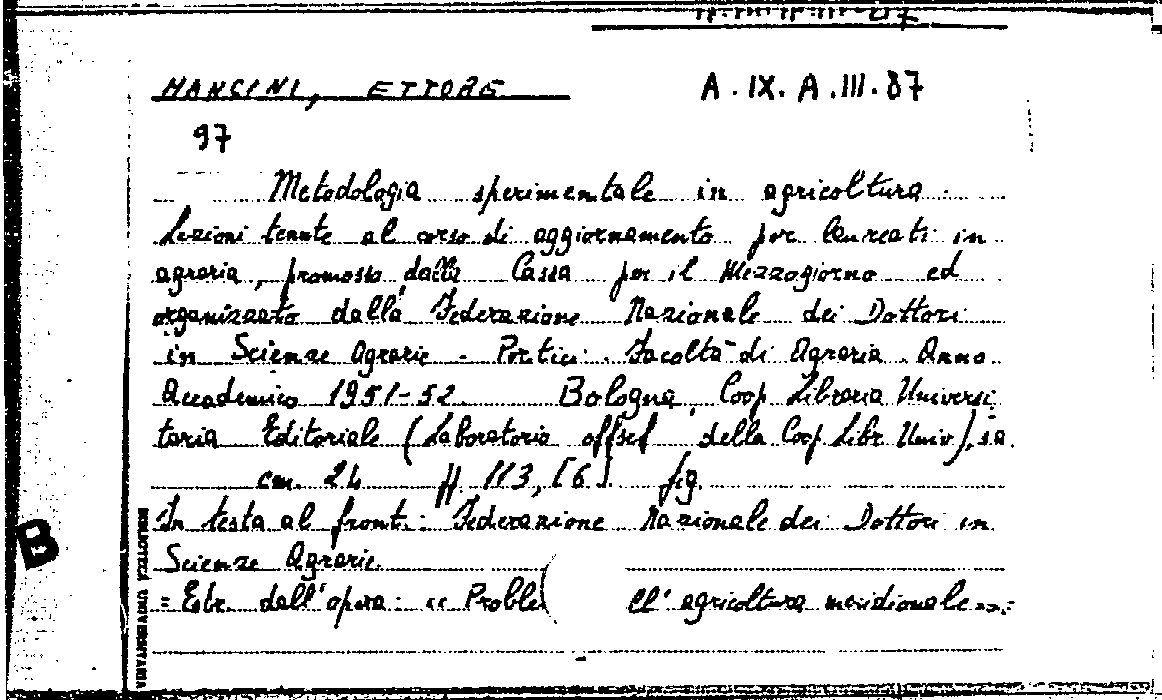 MANCINI, ETTORE
A.IX.A.III.87
97
Metodologia sperimentale in agricoltura.
Lezioni tenute al corso di aggiornamento per laureati in
agraria, promosso dalla Cassa per il Mezzogiorno ed
organizzato dalla Federazione Nazionale dei Dottori
in Scienze Agrarie - Portici. Facoltà di Agraria. Anno
Accademico 1951-52. Bologna, Coop Libraria Universi
taria Editoriale (Laboratorio offset della Coop. Libr. Univ), sa.
cm. 24 ff 113, [6] fig.
In testa al front.: Federazione Nazionale dei Dottori in
Scienze Agrarie.
= Estr. dall'opera: "Proble ell'agricoltura meridionale".=
B